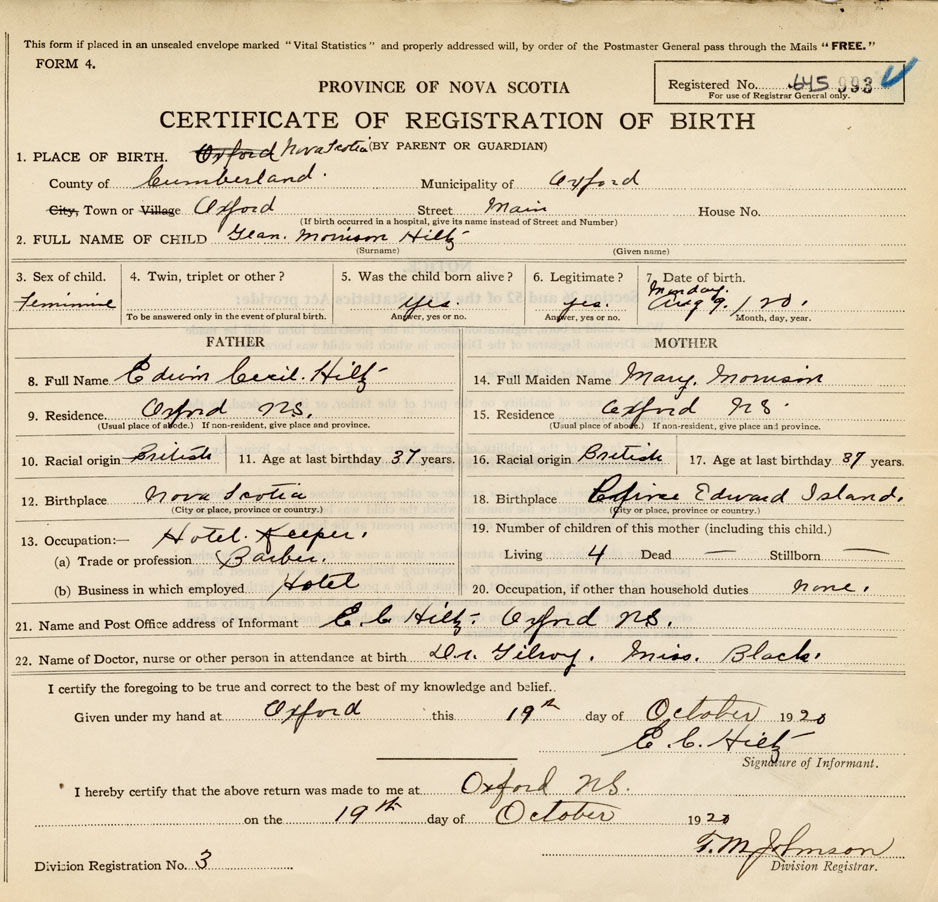 This form if placed in an unsealed envelope marked "Vital Statistics" and properly addressed will, by order of the Postmaster General pass through the Mails "FREE."
FORM 4.
PROVINCE OF NOVA SCOTIA
Registered No. 645 993
For use of Registrar General only.
CERTIFICATE OF REGISTRATION OF BIRTH
1. PLACE OF BIRTH. Oxford Nova Scotia (BY PARENT OR GUARDIAN)
County of Cumberland. Municipality of Oxford
City, Town or Village Oxford Street Main House No.
(If birth occurred in a hospital, give its name instead of Street and Number)
2. FULL NAME OF CHILD Jean. Morrison Hiltz
(Surname) (Given name)
3. Sex of child. 4. Twin, triplet or other? 5. Was the child born alive? 6. Legitimate? 7. Date of birth.
Monday.
Feminine yes. yes. Aug 9. / 20.
To be answered only in the event of plural birth. Answer, yes or no. Answer, yes or no. Month, day, year.
FATHER MOTHER
8. Full Name Edwin Cecil. Hiltz 14. Full Maiden Name Mary. Morrison
9. Residence Oxford NS. 15. Residence Oxford NS.
(Usual place of abode.) If non-resident, give place and province. (Usual place of abode.) If non-resident, give place and province.
10. Racial origin British 11. Age at last birthday 37 years. 16. Racial origin British 17. Age at last birthday 37 years.
12. Birthplace Nova Scotia 18. Birthplace Prince Edward Island.
(City or place, province or country.) (City or place, province or country.)
13. Occupation:— Hotel. Keeper. 19. Number of children of this mother (including this child.)
(a) Trade or profession Barber. Living 4 Dead — Stillborn —
(b) Business in which employed Hotel 20. Occupation, if other than household duties none.
21. Name and Post Office address of Informant E. C. Hiltz. Oxford NS.
22. Name of Doctor, nurse or other person in attendance at birth Dr. Gilroy. Miss. Black.
I certify the foregoing to be true and correct to the best of my knowledge and belief.
Given under my hand at Oxford this 19th day of October 1920
E. C. Hiltz
Signature of Informant.
I hereby certify that the above return was made to me at Oxford NS.
on the 19th day of October 1920
T. M. Johnson
Division Registration No. 3 Division Registrar.